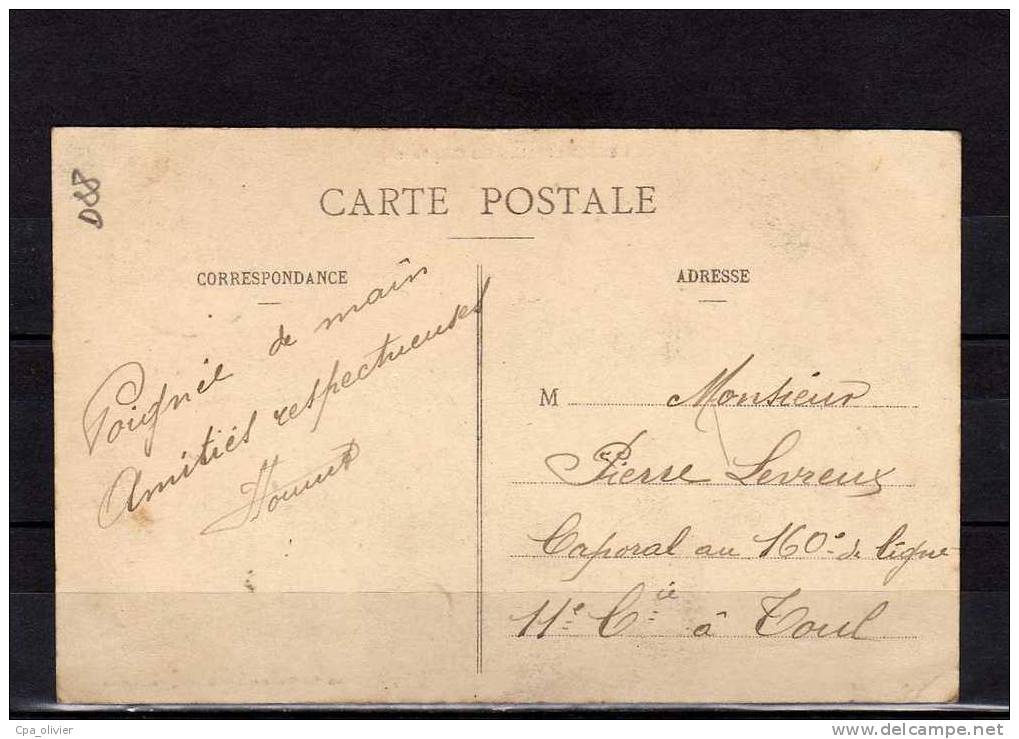 D88
CARTE POSTALE
CORRESPONDANCE
Poignée de main
Amitiés respectueuses
ADRESSE
M Monsieur
Pierre Levreux
Caporal au 160e de ligne
11e Cie à Toul
Cpa_olivier
www.delcampe.net